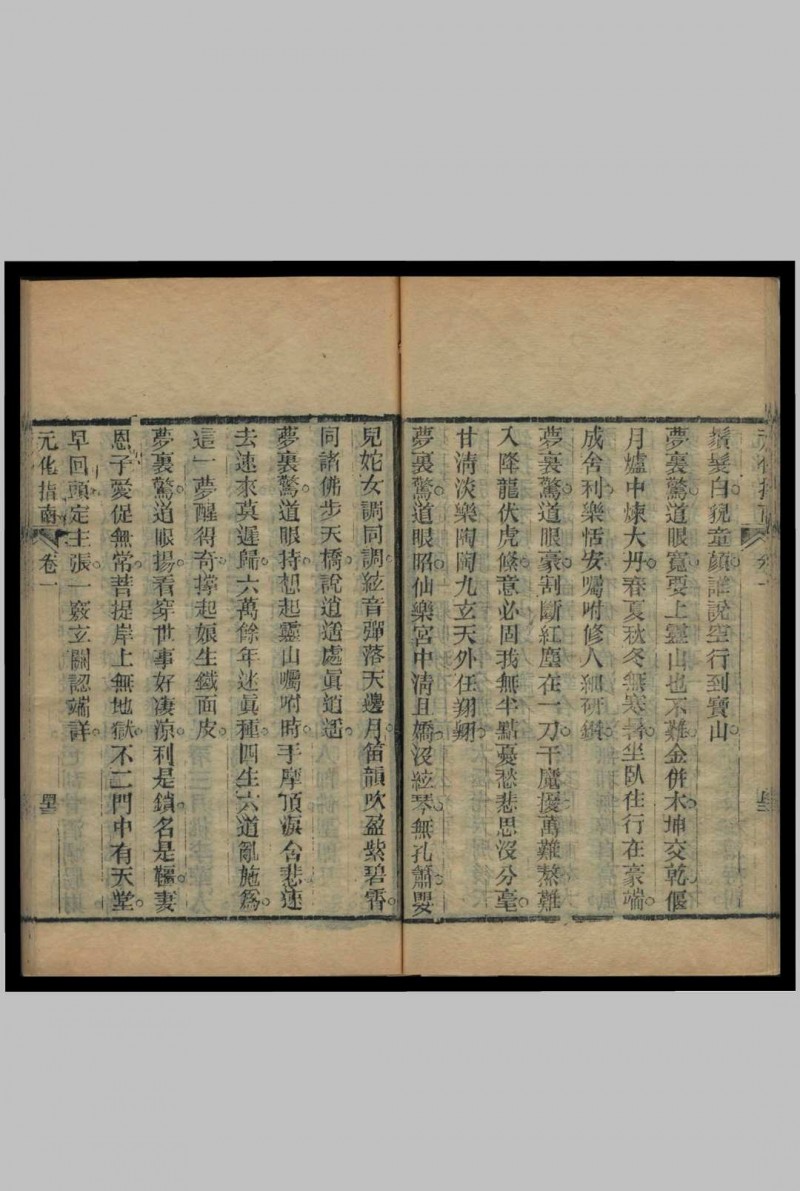 元化指南 卷一 星
鬚髮白貌童顏誰說空行到寶山
夢裏驚道眼寬要上靈山也不難金併木坤交乾偃
月爐中煉大丹春夏秋冬無寒暑坐臥住行在豪端
成舍利樂恬安囑咐修人細研鑽
夢裏驚道眼豪割斷紅塵在一刀千魔擾萬難熬難
入降龍伏虎條意必固我無半點憂愁悲思沒分毫
甘清淡樂陶陶九玄天外任翔翔
夢裏驚道眼昭仙樂宮中淸且嬌沒絃琴無孔簫嬰
兒姹女調同調絃音彈落天邊月笛韻吹盈紫碧霄
同諸佛步天橋說逍遙處眞逍遙
夢裏驚道眼持想起靈山囑咐時手摩頂淚含悲速
去速來莫遲歸六萬餘年迷眞種四生六道亂施爲
這一夢醒得奇撐起娘生鐵面皮
夢裏驚道眼揚看穿世事好凄涼利是鎖名是韁妻
恩子愛促無常菩提岸上無地獄不二門中有天堂
早回頭定主張一竅玄關認端詳
元化指南 卷一 星